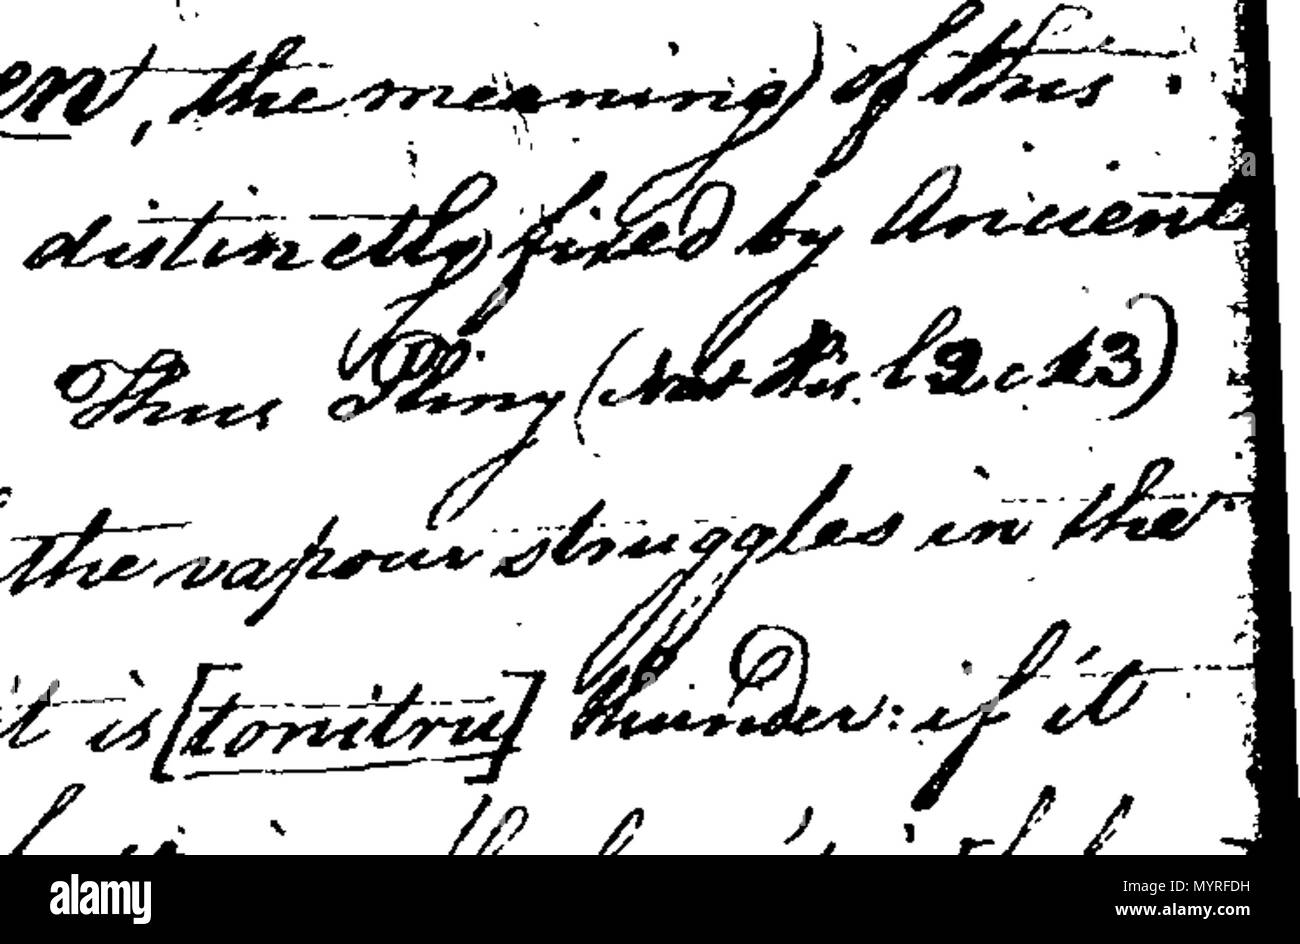 en, the meaning of this
distinctly fixed by Ancient
Thus Pliny (Nat His. l 2 c 43)
the vapour struggles in the
it is [tonitru] thunder: if it
alamy
Image ID: MYRFDH
www.alamy.com